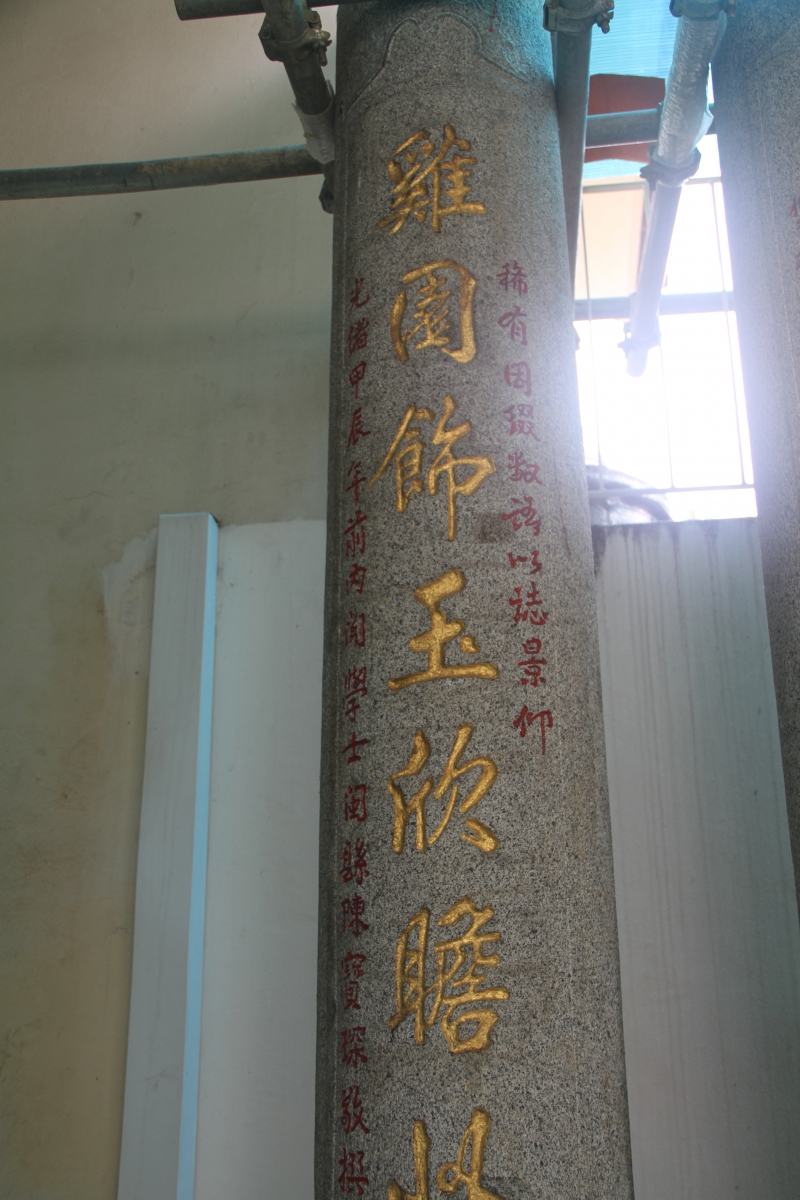 稀有因綴数語以誌景仰
雞園飾玉欣瞻
光緒甲辰年前內閣學士閩縣陳寶琛敬撰